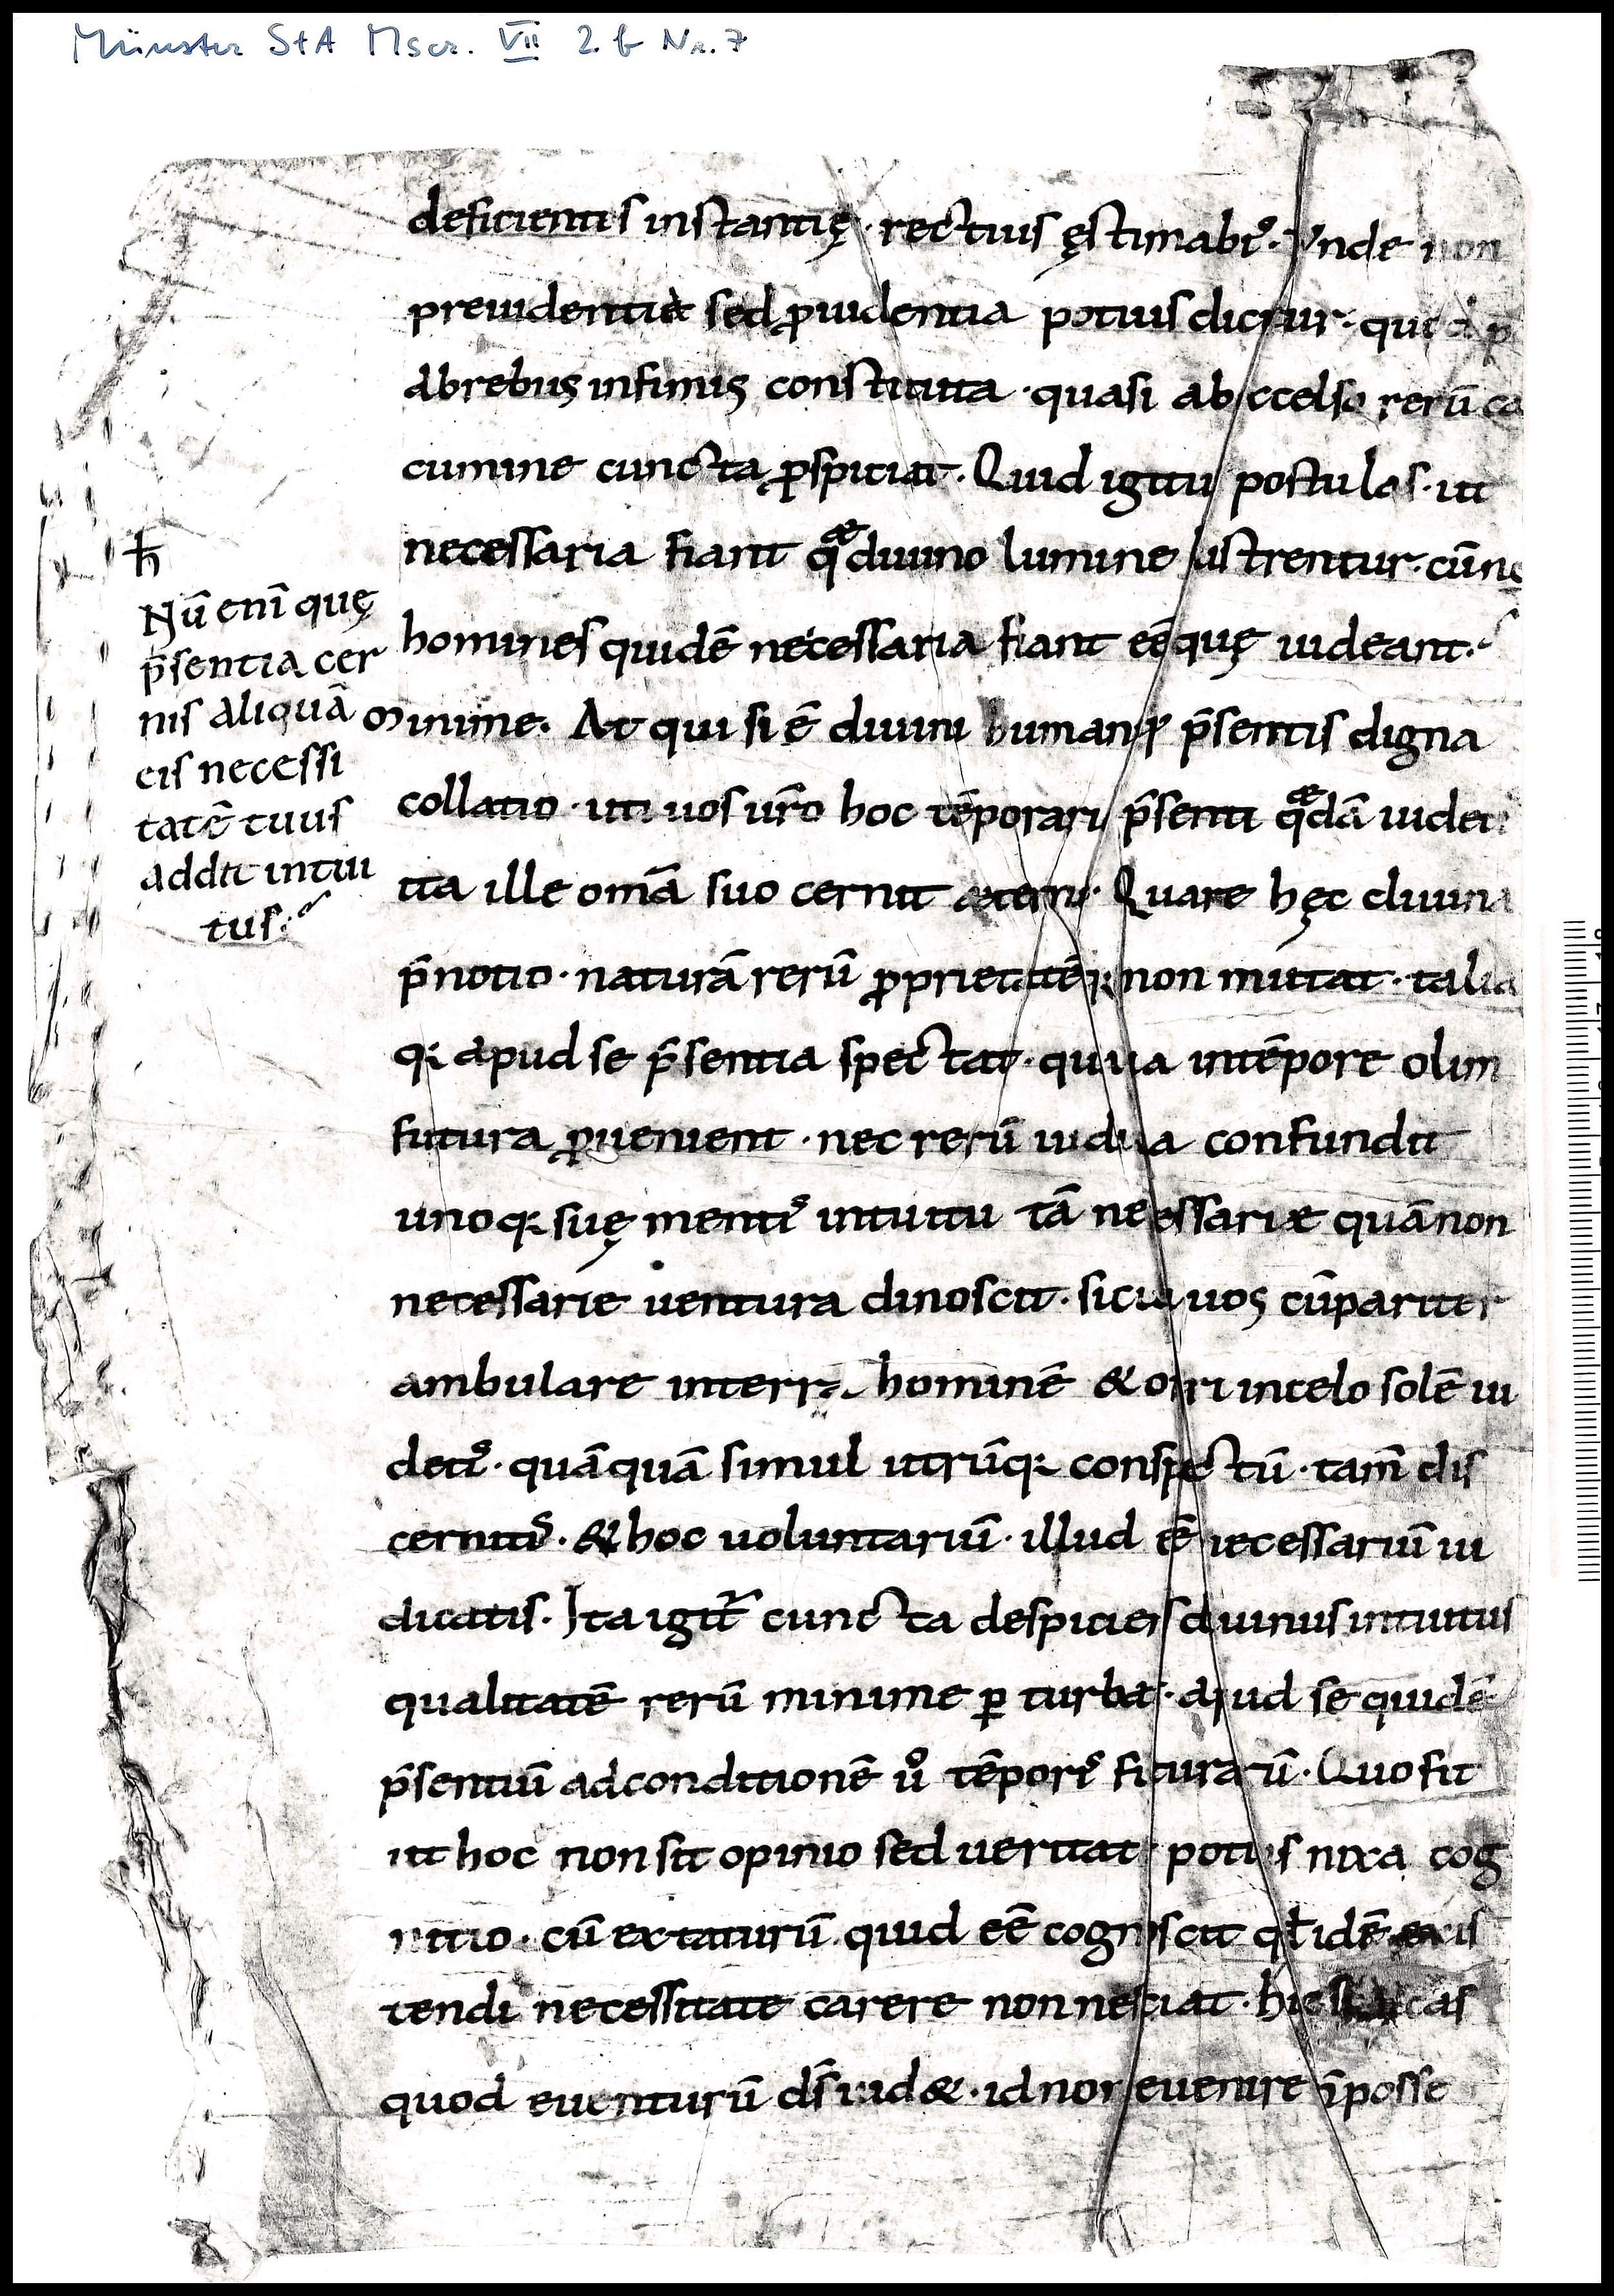 Münster StA Mscr. VII 2. b Nr. 7
deficientis instantię · rectius ęstimabi᷒. Vnde non
preuidentia sed ꝓuidentia potius dicitur· que
ab rebus infimis constituta · quasi ab excelso rerū ca
cumine cuncta ꝓspiciat. Quid igitur postulas · ut
necessaria fiant q̨ͣ diuino lumine lustrentur· cū nec
homines quidē necessaria fiant eē quę uideant.
ħ
Nū enī quę
p̄sentia cer
nis aliquā
eis necessi
tatē tuus
addit intui
tus:
Minime. At qui si ē diuini humaniq; p̄sentis digna
collatio · uti uos ur̄o hoc tēporario p̄senti q̨ͣdā uidetis
ita ille om̄a suo cernit aeterno. Quare hęc diuina
p̄notio · naturā rerū ꝓprietatēq; non mutat · talia
q; apud se p̄sentia spectat · qualia in tēpore olim
futura ꝓuenient · nec rerū iudicia confundit
unoq; suę menti᷒ intuitu tā necessarie quā non
necessarie uentura dinoscit · sicut uos cū pariter
ambulare in terra hominē & oriri in celo solē ui
deti᷒ · quāquā simul utrūq; conspectū · tam̄ dis
cerniti᷒ · & hoc uoluntariū · illud eē necessariū iu
dicatis. Ita igit̄ cuncta despiciens diuinus intuitus
qualitatē rerū minime ꝑ turbat · apud se quidē
p̄sentiū ad conditionē uͦ tēpori᷒ futurarū. Quo fit
ut hoc non sit opinio sed ueritate potius nixa cog
nitio · cū extaturū quid eē cognoscit qđ idē exis
tendi necessitate carere non nesciat · hic si dicas
quod euenturū ds̄ uid& · id non euenire n̄ posse